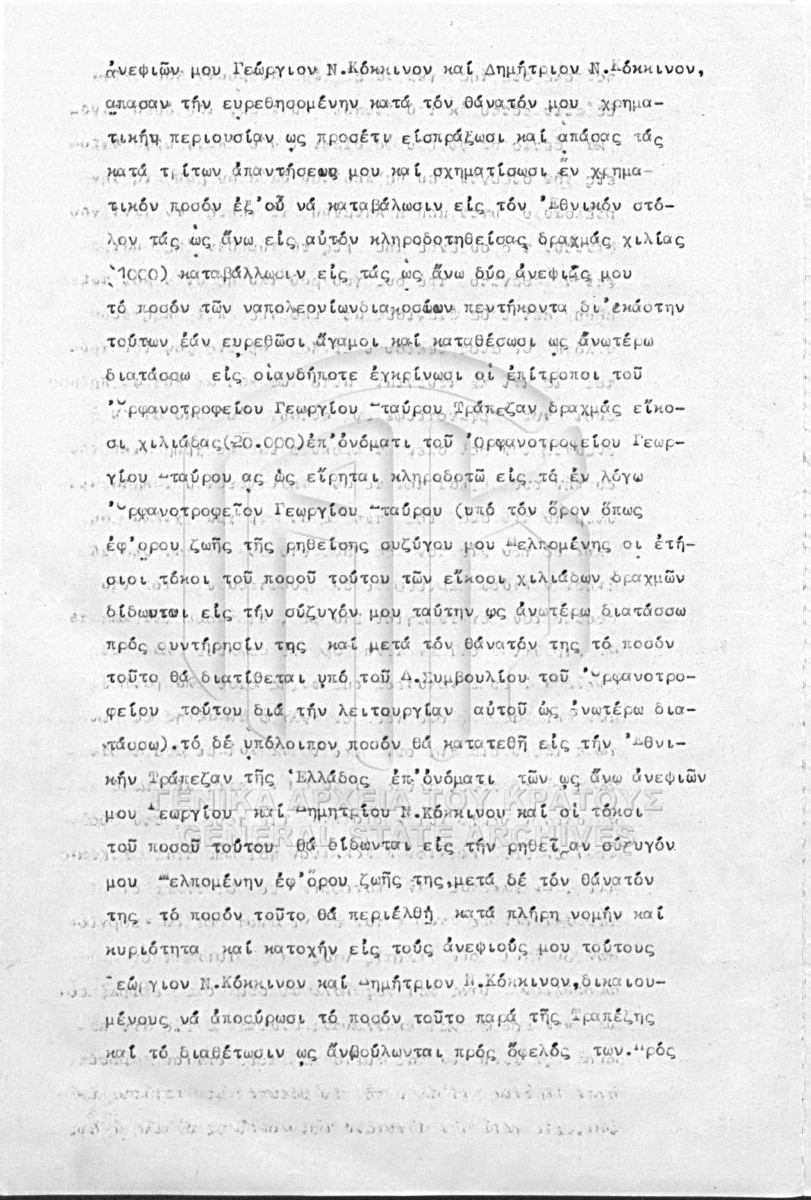 ἀνεφιῶν μου Γεώργιον Ν.Κόκκινον καί Δημήτριον Ν.Κόκκινον,
απασαν τήν ευρεθησομένην κατά τόν θάνατόν μου χρημα-
τικήν περιουσίαν ως προσέτι εἰσπράξωσι καί ἀπάσας τάς
κατά τρίτων ἀπαντήσεως μου καί σχηματίσωσι ἕν χρημα-
τικόν ποσόν ἐξ'οὗ νά καταβάλωσιν εἰς τόν Ἐθνικόν στό-
λον τάς ὡς ἄνω εἰς αὐτόν κληροδοτηθείσας δραχμάς χιλίας
(1000) καταβάλλωσιν εἰς τάς ὡς ἄνω δύο ἀνεψιάς μου
τό ποσόν τῶν ναπολεονίωνδιακοσίων πεντήκοντα δι'ἑκάστην
τούτων ἐάν ευρεθῶσι ἄγαμοι καί καταθέσωσι ως ἀνωτέρω
διατάσσω εἰς οἱανδήποτε ἐγκρίνωσι οἱ ἐπίτροποι τοῦ
Ὀρφανοτροφείου Γεωργίου Σταύρου Τράπεζαν δραχμάς εἴκο-
σι χιλιάδας(20.000)ἐπ'ὀνόματι τοῦ Ὀρφανοτροφείου Γεωρ-
γίου Σταύρου ας ὡς εἴρηται κληροδοτῶ εἰς τό ἐν λόγω
Ὀρφανοτροφεῖον Γεωργίου Σταύρου (υπό τόν ὅρον ὅπως
ἐφ'ορου ζωῆς τῆς ρηθείσης συζύγου μου Μελπομένης οι ἐτή-
σιοι τόκοι τοῦ ποσοῦ τούτου τῶν εἴκοσι χιλιάδων δραχμῶν
δίδωνται εἰς τήν σύζυγόν μου ταύτην ως ἀνωτέρω διατάσσω
πρός συντήρησίν της καί μετά τόν θάνατόν της τό ποσόν
τοῦτο θά διατίθεται υπό τοῦ Δ.Συμβουλίου τοῦ Ὀρφανοτρο-
φείου τούτου διά τήν λειτουργίαν αὐτοῦ ὡς ἀνωτέρω δια-
τάσσω).τό δέ υπόλοιπον ποσόν θά κατατεθῆ εἰς τήν Ἐθνι-
κήν Τράπεζαν τῆς Ἑλλάδος ἐπ'ὀνόματι τῶν ως ἄνω ἀνεψιῶν
μου Γεωργίου καί Δημητρίου Ν.Κόκκινου καί οἱ τόκοι
ΓΕΝΙΚΑ ΑΡΧΕΙΑ ΤΟΥ ΚΡΑΤΟΥΣ
GENERAL STATE ARCHIVES
τοῦ ποσοῦ τούτου θά δίδωνται εἰς τήν ρηθεῖσαν σύζυγόν
μου Μελπομένην ἐφ'ὅρου ζωῆς της,μετά δέ τόν θάνατόν
της τό ποσόν τοῦτο θά περιέλθῃ κατά πλήρη νομήν καί
κυριότητα καί κατοχήν εἰς τούς ἀνεψιούς μου τούτους
Γεώργιον Ν.Κόκκινον καί Δημήτριον Ν.Κόκκινον,δικαιου-
μένους νά ἀποσύρωσι τό ποσόν τοῦτο παρά τῆς Τραπέζης
καί τό διαθέτωσιν ως ἄνβούλωνται πρός ὄφελός των.Πρός